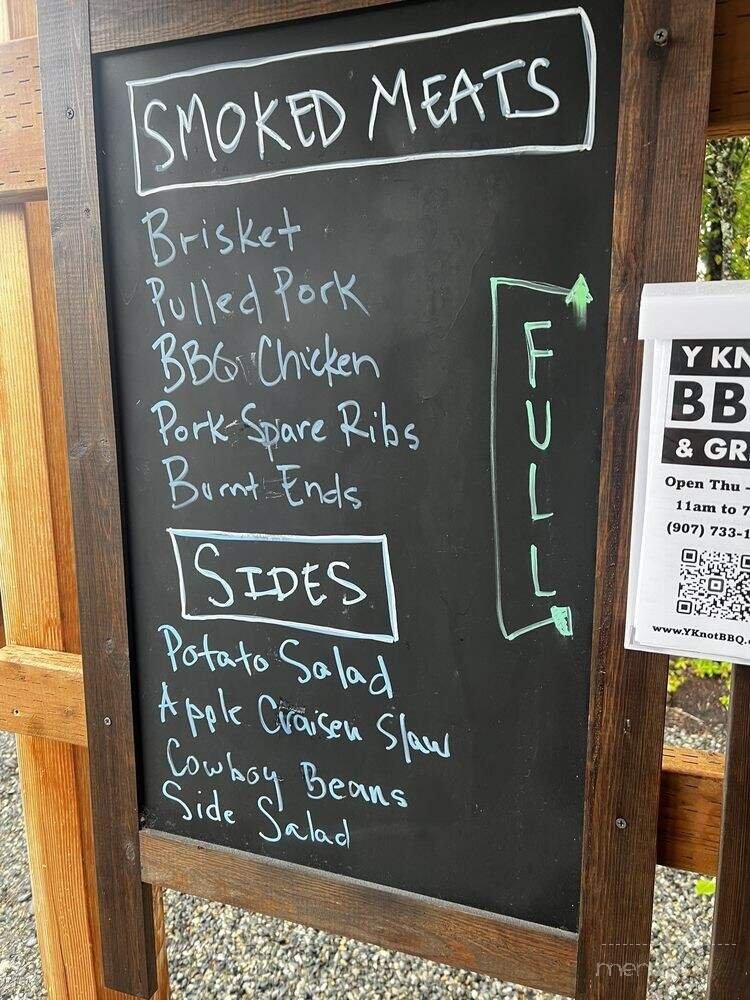 SMOKED MEATS
Brisket
Pulled Pork
BBQ Chicken
Pork Spare Ribs
Burnt Ends
FULL
SIDES
Potato Salad
Apple Craisen Slaw
Cowboy Beans
Side Salad
Y KN
BB
& GR
Open Thu -
11am to 7
(907) 733-1
www.YKnotBBQ.